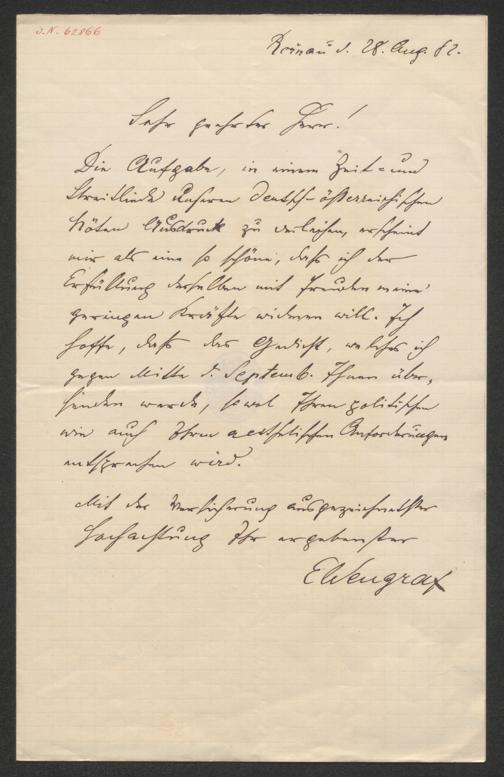 J.N. 62866
d. 28. Aug. 82.
Sehr geehrter Herr!
Die Aufgabe, in einem Zeit- und
Streitliede unseren deutsch-österreichischen
Nöten Ausdruck zu verleihen, erscheint
mir als eine so schöne, daß ich der
Erfüllung derselben mit Freuden meine
geringen Kräfte widmen will. Ich
hoffe, daß das Gedicht, welches ich
gegen Mitte d. Septemb. Ihnen über-
senden werde, sowol Ihren politischen
wie auch Ihren aesthetischen Anforderungen
entsprechen wird.
Mit der Versicherung ausgezeichnetster
Hochachtung Ihr ergebenster
EWengraf